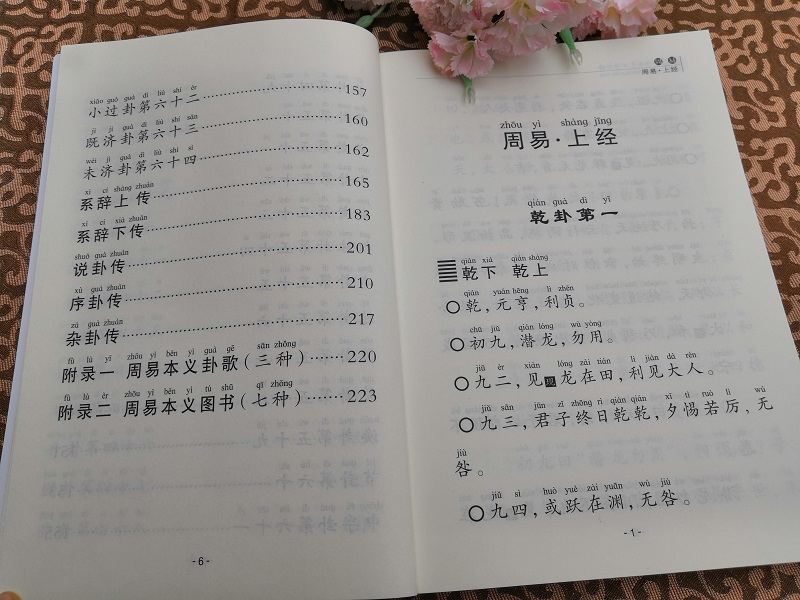 xiǎo guò guà dì liù shí èr
小过卦第六十二……157
jì jì guà dì liù shí sān
既济卦第六十三……160
wèi jì guà dì liù shí sì
未济卦第六十四……162
xì cí shàng zhuàn
系辞上传……165
xì cí xià zhuàn
系辞下传……183
shuō guà zhuàn
说卦传……201
xù guà zhuàn
序卦传……210
zá guà zhuàn
杂卦传……217
fù lù yī zhōu yì běn yì guà gē sān zhǒng
附录一 周易本义卦歌(三种)……220
fù lù èr zhōu yì běn yì tú shū qī zhǒng
附录二 周易本义图书(七种)……223
- 6 -
周易·上经
zhōu yì shàng jīng
周易·上经
qián guà dì yī
乾卦第一
qián xià qián shàng
乾下 乾上
qián yuán hēng lì zhēn
○乾,元亨,利贞。
chū jiǔ qián lóng wù yòng
○初九,潜龙,勿用。
jiǔ èr xiàn lóng zài tián lì jiàn dà rén
○九二,见龙在田,利见大人。
jiǔ sān jūn zǐ zhōng rì qián qián xī tì ruò lì wú
○九三,君子终日乾乾,夕惕若厉,无
jiù
咎。
jiǔ sì huò yuè zài yuān wú jiù
○九四,或跃在渊,无咎。
- 1 -